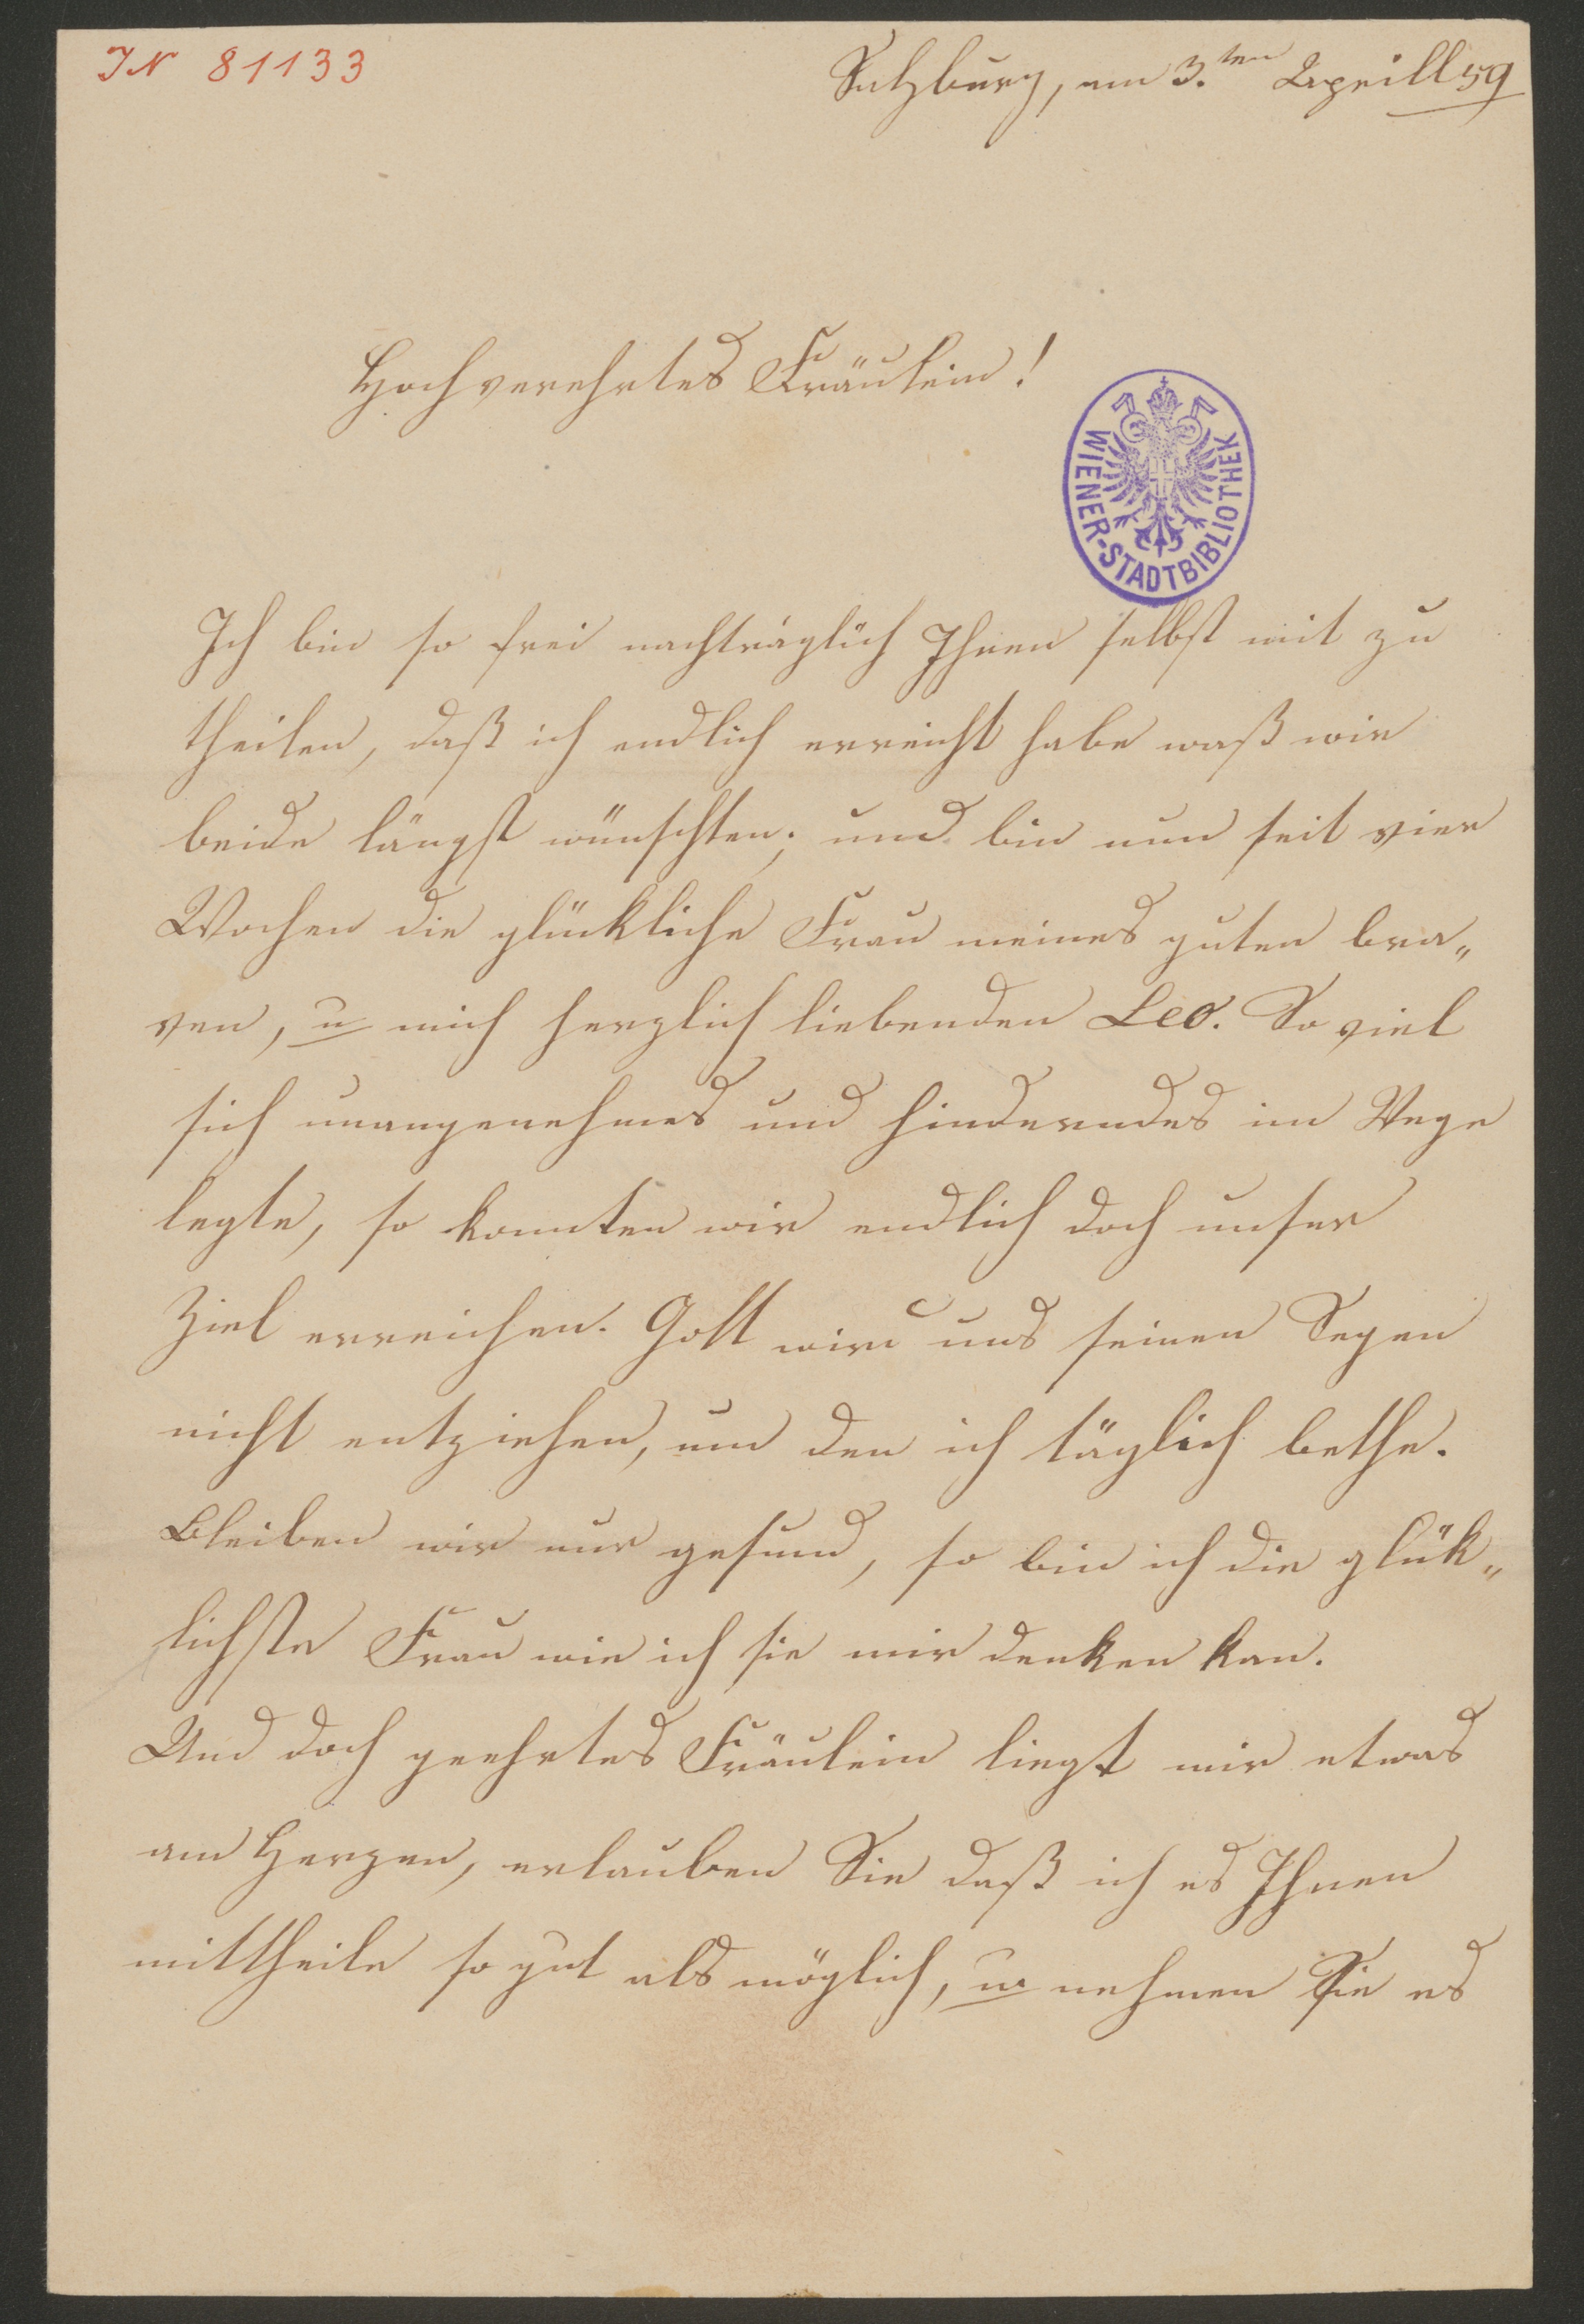 IN 81133
Salzburg, am 3.ten Aprill 59
Hochverehrtes Fräulein!
WIENER-STADTBIBLIOTHEK
Ich bin so frei nachträglich Ihnen selbst mit zu
theilen, daß ich endlich erreicht habe waß wir
beide längst wünschten; und bin nun seit vier
Wochen die glückliche Frau meines guten bra„
ven, u mich herzlich liebenden Leo. So viel
sich unangenehmes und hinderndes im Wege
legte, so konnten wir endlich doch unser
Ziel erreichen. Gott wird uns seinen Segen
nicht entziehen, um den ich täglich bethe.
Bleiben wir nur gesund, so bin ich die glük„
lichste Frau wie ich sie mir denken kan.
Und doch geehrtes Fräulein liegt mir etwas
am Herzen, erlauben Sie daß ich es Ihnen
mittheile so gut als möglich, u. nehmen Sie es